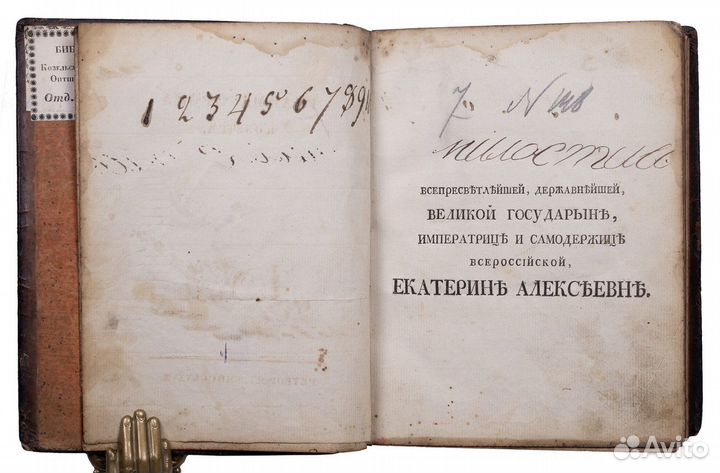 БИБ
Козельс
Оптин
Отд.
1 2 3 4 5 6 7 8 9
7. N 148
милостив
ВСЕПРЕСВѢТЛѢЙШЕЙ, ДЕРЖАВНѢЙШЕЙ,
ВЕЛИКОЙ ГОСУДАРЫНѢ,
ИМПЕРАТРИЦѢ И САМОДЕРЖИЦѢ
ВСЕРОССІЙСКОЙ,
ЕКАТЕРИНѢ АЛЕКСѢЕВНѢ.
Avito